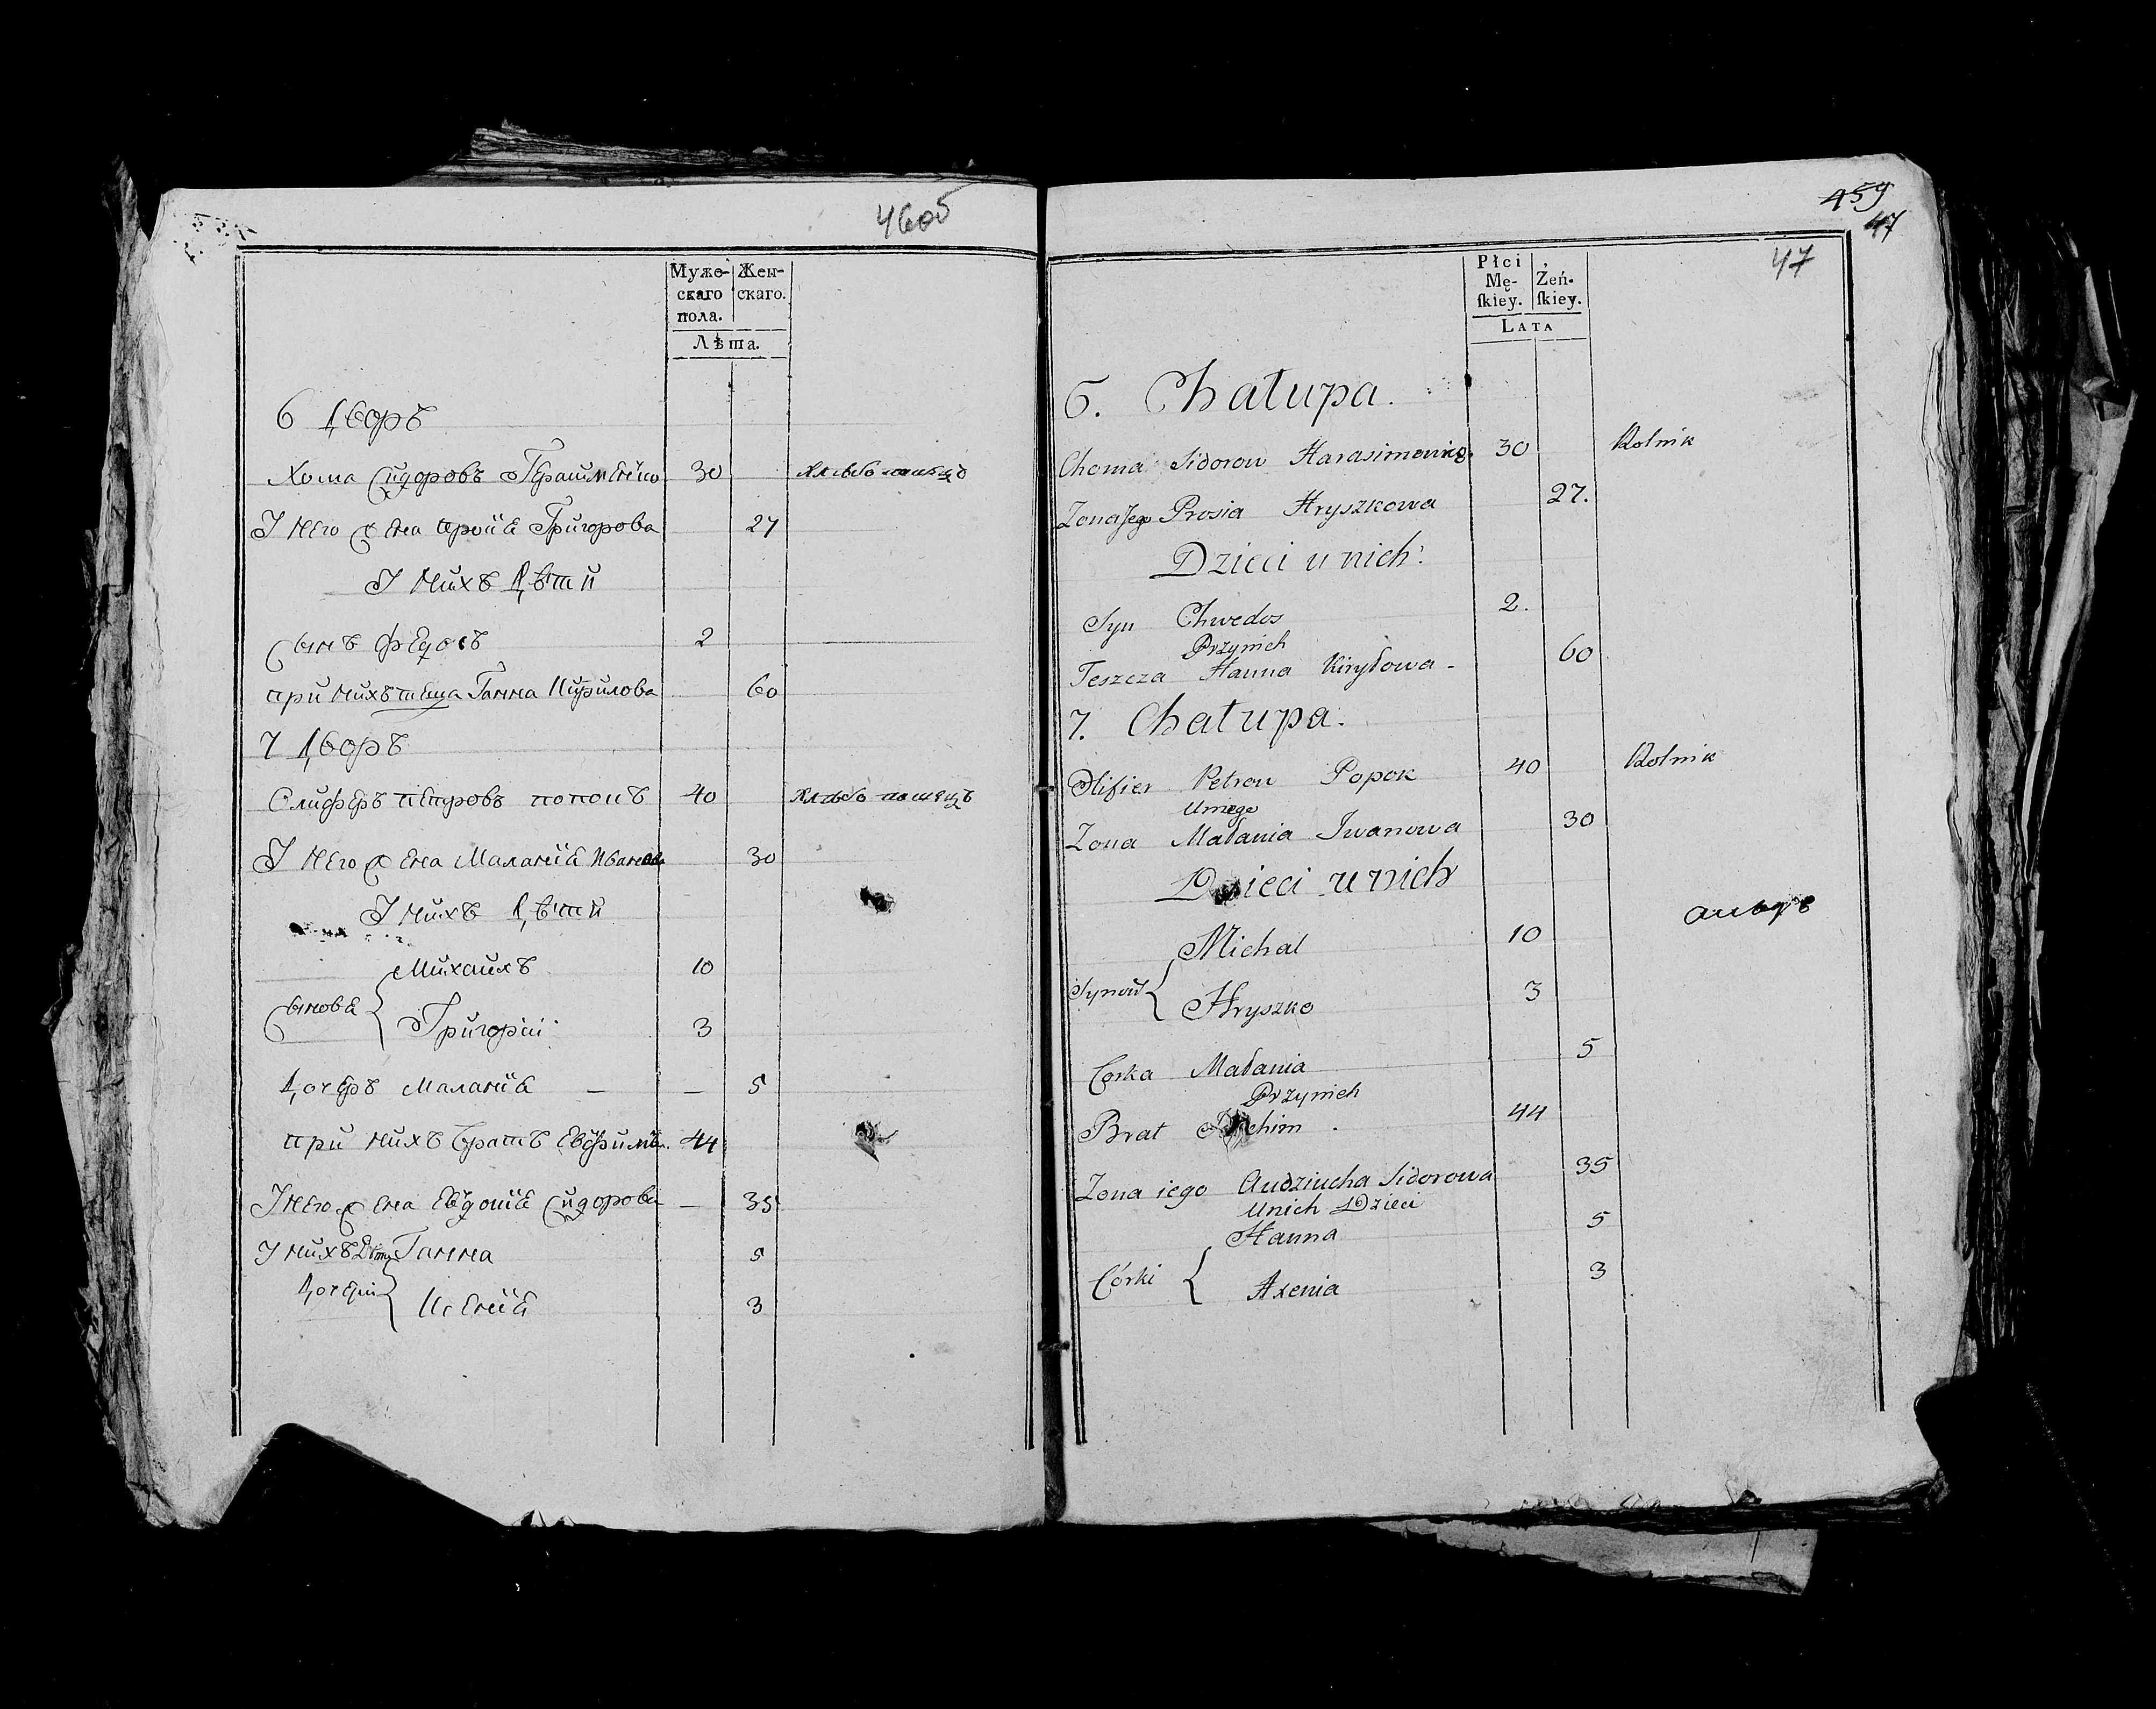 46об
Муже-
скаго
пола.
Жен-
скаго.
Лѣта.
6 Дворъ
Хома Сидоровъ Герасименко 30 хлебопашецъ
У Него жена Просия Григорова 27
У Нихъ Дѣти
Сынъ Федосъ 2
при Нихъ теща Ганна Кирилова 60
7 Дворъ
Олиферъ Петровъ попокъ 40 хлебопашецъ
У Него жена Малания Иванова 30
У Нихъ Дѣти
Михаилъ 10
Сынове
Григорий 3
Дочеръ Малания — — 5
при Нихъ братъ Евфимъ 44
У Него жена Евдокия Сидорова — 35
У Нихъ Дѣти Ганна 5
Дочери
Ксения 3
459
47
47
Płci
Mę-
ſkiey.
Żeń-
ſkiey.
Lata
6. Chałupa.
Choma Sidorow Harasimowicz. 30 Rolnik
Zona Jego Prosia Hryszkowa 27.
Dzieci u nich:
Syn Chwedos 2.
Przynich
Teszcza Hanna Kiryłowa - 60
7. Chałupa.
Olifier Petrow Popok 40 Rolnik
Uniego
Zona Małania Iwanowa 30
Dzieci u nich
Michal 10
Synow
Hryszko 3
Corka Małania 5
Przynich
Brat Jachim . 44
Zona iego Audziucha Sidorowa 35
Unich Dzieci
Hanna 5
Córki
Axenia 3